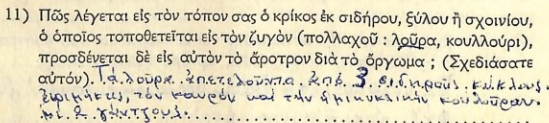 11) Πῶς λέγεται εἰς τὸν τόπον σας ὁ κρίκος ἐκ σιδήρου, ξύλου ἢ σχοινίου,
ὁ ὁποῖος τοποθετεῖται εἰς τὸν ζυγὸν (πολλαχοῦ : λοῦρα, κουλλούρι),
προσδένεται δὲ εἰς αὐτὸν τὸ ἄροτρον διὰ τὸ ὄργωμα ; (Σχεδιάσατε
αὐτόν). Τὰ λοῦρα. ἀπετελοῦντο. ἀπὸ. 3. σιδηροῦς. κύκλους.
τὸν καυρὸν καὶ τὴν ἡμικυκλικὴν κουλοῦραν.
μὲ 2 γάντζους.